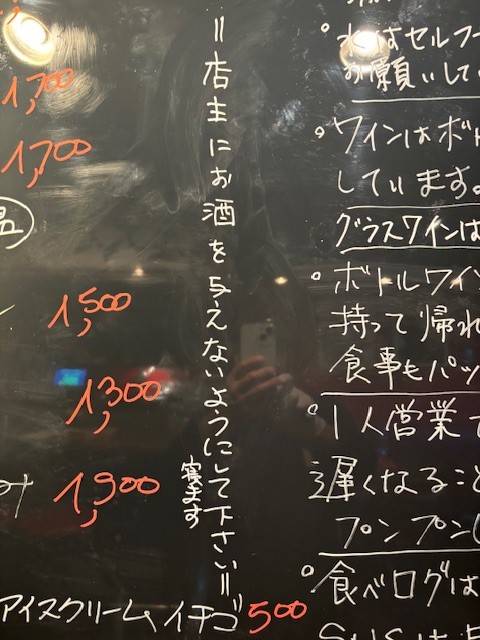 1,700
1,700
1,500
1,300
1,900
アイスクリーム、イチゴ 500
=店主にお酒を与えないようにして下さい=
寝ます
。水はセルフ
お願いして
。ワインはボト
しています。
グラスワインは
。ボトルワイン
持って帰れ
食事もパッ
。1人営業で
遅くなること
プンプンし
。食べログは